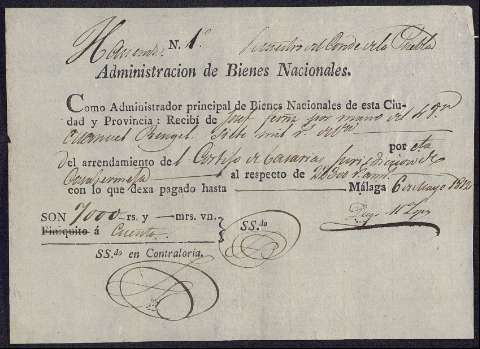 N. 1º Secuestro del Conde de la Puebla
Administracion de Bienes Nacionales.
Como Administrador principal de Bienes Nacionales de esta Ciu-
dad y Provincia: Recibí de Josef por mano del Sr.
Manuel Rengel, Siete mil rs. de vn.
por cta
del arrendamiento del Cortijo de Casarias Jurisdicion de
Casabermeja al respecto de
con lo que dexa pagado hasta Málaga 6 de Mayo 1812
SON 7000 rs. y mrs. vn. SS.do
Finiquito á Cuenta.
SS.do en Contraloría.